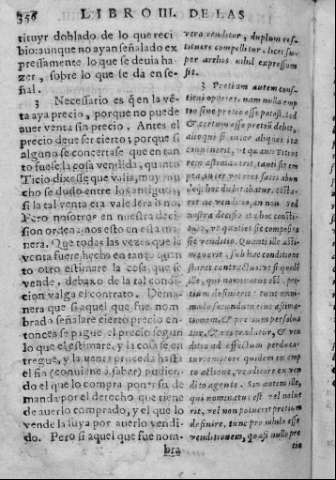 356 LIBRO III. DE LAS
tituyr doblado de lo que reci
bio: aunque no ayan señalado ex
pressamente lo que se deuia ha-
zer, sobre lo que le da en se-
ñal.
3 Necessario es q̃ en la vẽ
ta aya precio, porque no puede
auer venta sin precio. Antes el
precio deue ser cierto; porque si
alguno se concertasse que en tan
to fuesse la cosa vendida, quanto
Ticio dixesse que valia, muy mu
cho se dudo entre los antiguos,
si la tal venta era valedera
Pero nosotros en nuestra deci
sion ordenamos esto en esta ma
nera. Que todas las vezes que la
venta fuere hecho en tanto quan
to otro estimare la cosa, que se
vende, debaxo de la tal condi
cion valga el contrato. De ma
nera que si aquel que fue nom
brado señalare cierto precio en-
tonces se pague el precio segun
lo que el estimare, y la cosa se en
tregue, y la venta proceda hasta
el fin (conuiene a saber) pudien
do el que lo compra poner su de
manda por el derecho que tiene
de auerlo comprado, y el que vo
vende la suya por auerlo vendi
do. Pero si aquel que fue nom-
bra
vera venditor, duplum resti
tuere compellitur, licet su-
per arris nihil expressum
sit.
3 Pretium autem constitui
oportet, nam nulla emptio
sine pretio esse potest. Sed
& certum esse pretium debet,
alioqui si inter aliquos ita
conuenerit, vt quanti Titius
rem æstimauerit, tanti sit em
pta, inter veteres satis abun
deque hoc dubitabatur
siue venditio, an non sed
nostra decisio ita hoc consti
tuit, vt quoties sic composita
sit venditio, Quanti ille æsti
mauerit, sub hac conditione
staret contractus: vt si quidem
ipse, qui nominatus est, pre-
tium definierit, tunc omni-
modo secundum eius æstima-
tionem, & pretium persolua
tur, & res tradatur, & ven
ditio ad effectum perduca-
tur, emptore quidem ex em-
pto actione, venditore ex ven
dito agente. Sin autem ille,
qui nominatus est, vel nolue
rit, vel non potuerit pretium
definire, tunc pro nihilo esse
venditionem, quasi nullo pre
tio